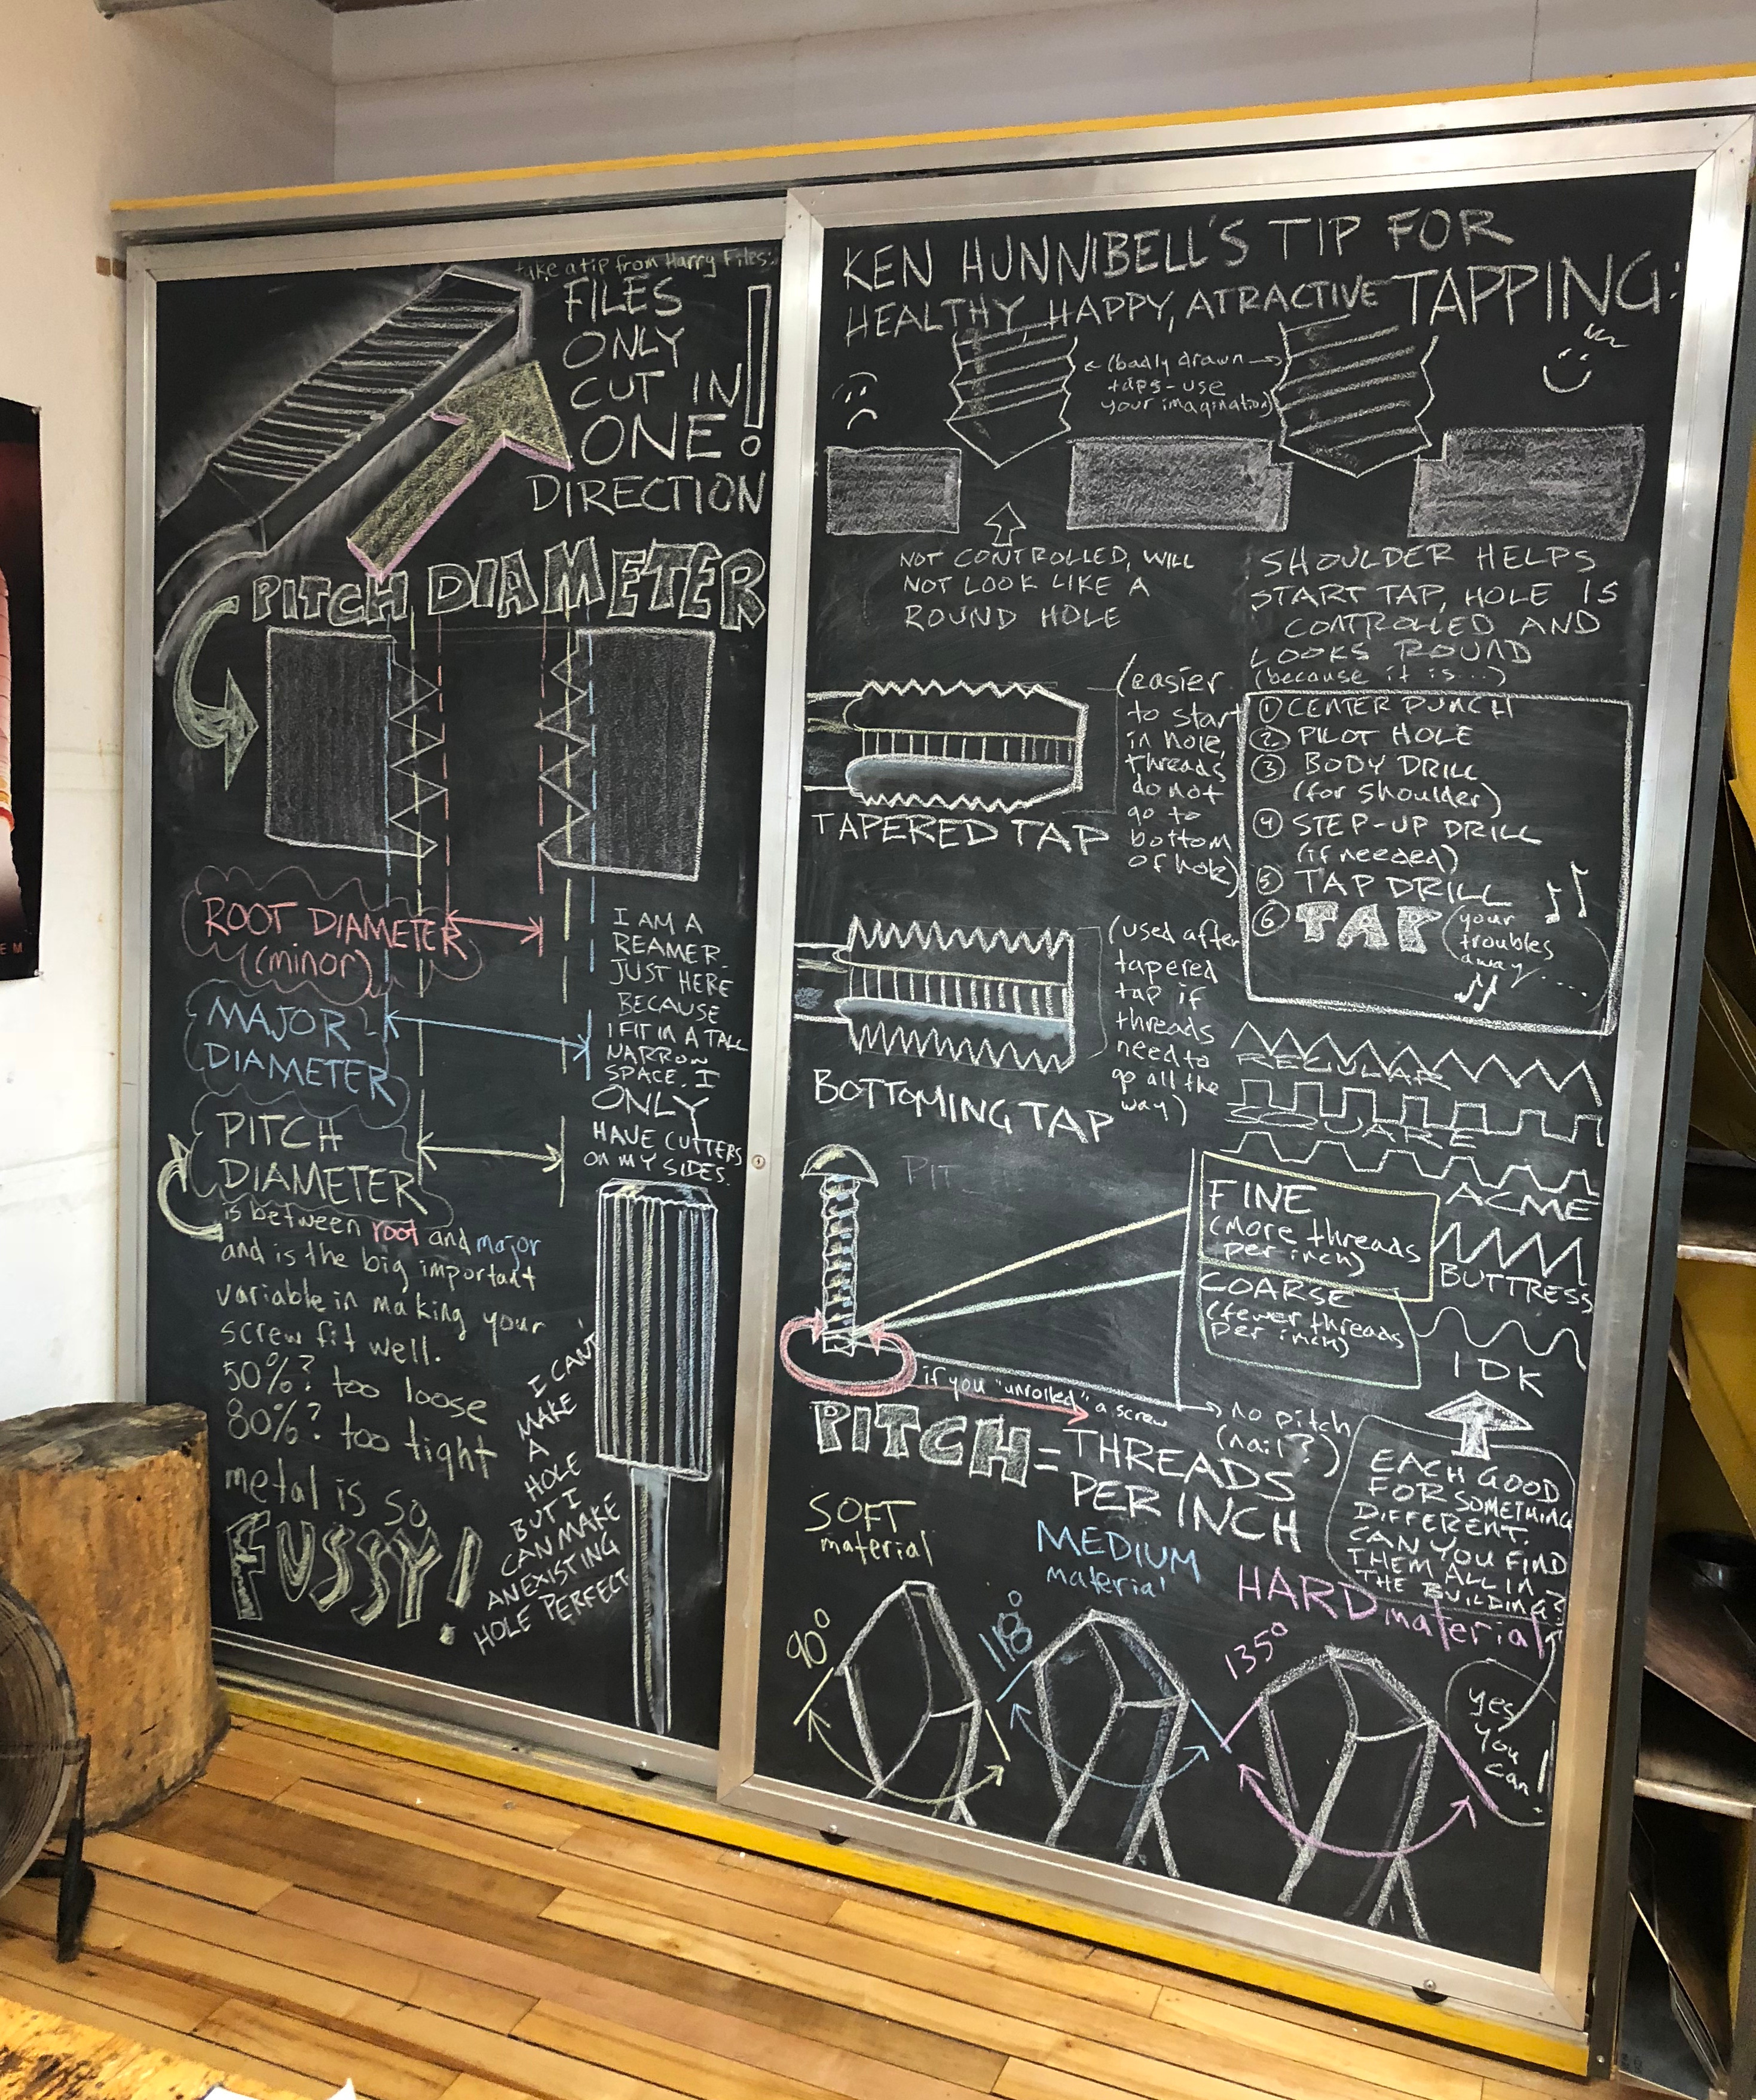 take a tip from Harry Files:
FILES
ONLY
CUT IN
ONE!
DIRECTION
PITCH DIAMETER
ROOT DIAMETER
(minor)
MAJOR
DIAMETER
PITCH
DIAMETER
is between root and major
and is the big important
variable in making your
screw fit well.
50%? too loose
80%? too tight
metal is so
FUSSY!
I AM A
REAMER
JUST HERE
BECAUSE
I FIT IN A TALL
NARROW
SPACE. I
ONLY
HAVE CUTTERS
ON MY SIDES.
I CAN'T
MAKE
A
HOLE
BUT I
CAN MAKE
AN EXISTING
HOLE PERFECT
KEN HUNNIBELL'S TIP FOR
HEALTHY, HAPPY, ATRACTIVE TAPPING:
(badly drawn
taps - use
your imagination)
NOT CONTROLLED, WILL
NOT LOOK LIKE A
ROUND HOLE
SHOULDER HELPS
START TAP, HOLE IS
CONTROLLED AND
LOOKS ROUND
(because it is...)
(easier
to start
in hole,
threads
do not
go to
bottom
of hole)
TAPERED TAP
① CENTER PUNCH
② PILOT HOLE
③ BODY DRILL
(for shoulder)
④ STEP-UP DRILL
(if needed)
⑤ TAP DRILL
⑥ TAP (your
troubles
away....
(used after
tapered
tap if
threads
need to
go all the
way)
BOTTOMING TAP
REGULAR
SQUARE
ACME
BUTTRESS
IDK
PIT
FINE
(more threads
per inch)
COARSE
(fewer threads
per inch)
if you "unrolled" a screw
no pitch
(nail?)
PITCH = THREADS
PER INCH
EACH GOOD
FOR SOMETHING
DIFFERENT.
CAN YOU FIND
THEM ALL IN
THE BUILDING?
yes
you
can!
SOFT
material
MEDIUM
material
HARD material
90°
118°
135°
EM